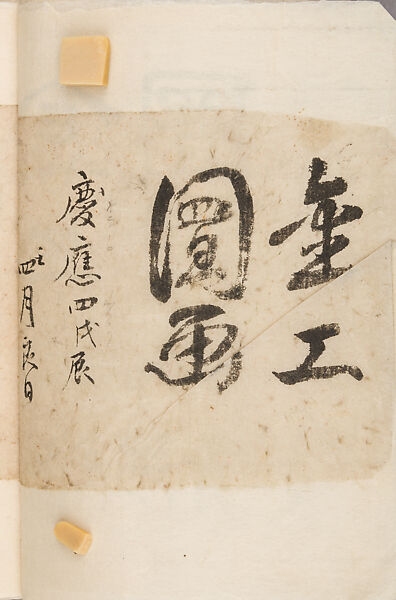 金工
圖画
慶應四戊辰
壬四月良日